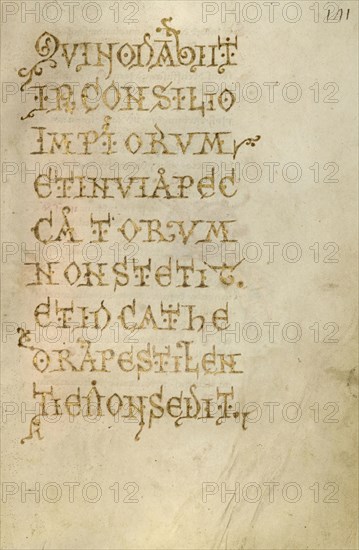 QVI NON ABIIT
IN CONSILIO
IMPIORVM
ET IN VIA PEC
CATORVM
NON STETIT.
ET IN CATHE
DRA PESTILEN
TIE NON SEDIT.
PHOTO 12